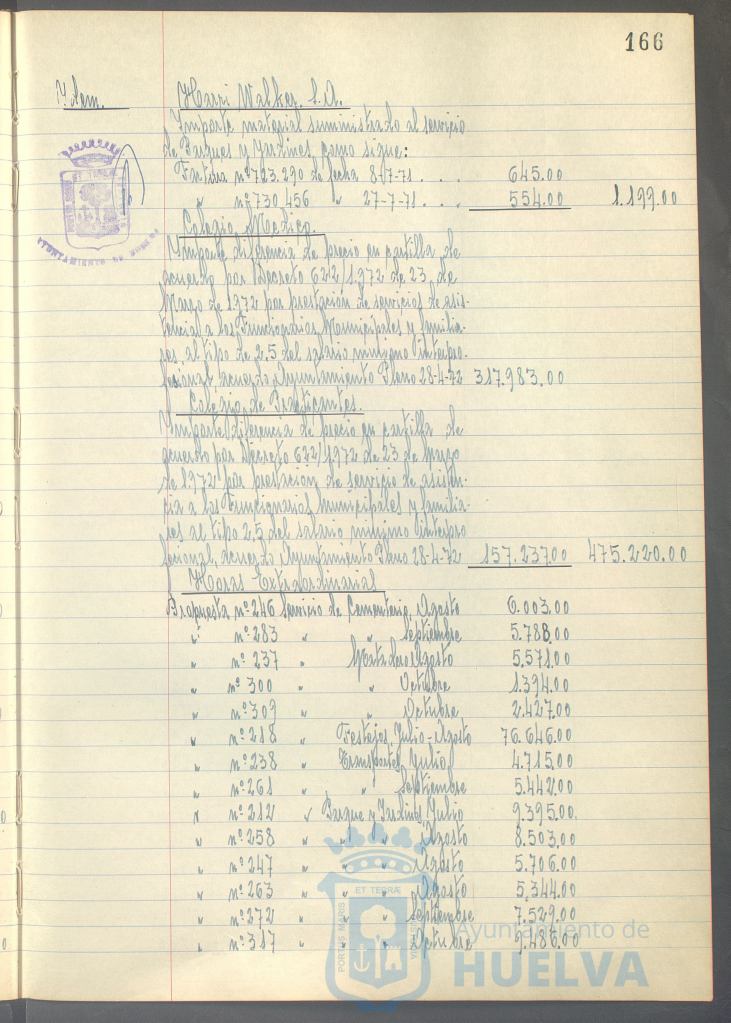 166
Ydem. Harri Walker, S.A.
Importe material suministrado al servicio
de Parques y Jardines como sigue:
Factura nº 723.290 de fecha 8-7-71 . . . 645.00
" nº 730.456 " 27-7-71 . . . 554.00 1.199.00
Colegio Medico.
Importe diferencia de precio en cartilla de
acuerdo por Decreto 622/1972 de 23 de
Marzo de 1972 por prestación de servicios de asis-
tencial a los Funcionarios Municipales y familia-
res, al tipo de 2.5 del salario minimo interpro-
fesional, acuerdo Ayuntamiento Pleno 28-4-72 317.983.00
Colegio de Practicantes.
Importe diferencia de precio en cartilla de
acuerdo por Decreto 622/1972 de 23 de Marzo
de 1972 por prestación de servicio de asisten-
cia a los Funcionarios Municipales y familia-
res al tipo 2.5 del salario minimo interpro
fesional, acuerdo Ayuntamiento Pleno 28-4-72 157.237.00 475.220.00
Horas Extraordinarias
Propuesta nº 246 Servicio de Cementerio, Agosto 6.003.00
" nº 283 " " Septiembre 5.788.00
" nº 237 " Matadero Agosto 5.571.00
" nº 300 " " Octubre 1.394.00
" nº 309 " " Octubre 2.427.00
" nº 218 " Festejos, Julio-Agosto 76.646.00
" nº 238 " Transportes, Julio 4.715.00
" nº 261 " " Septiembre 5.442.00
" nº 212 " Parque y Jardines, Julio 9.395.00
" nº 258 " " " Agosto 8.503.00
" nº 247 " " " Agosto 5.706.00
" nº 263 " " " Agosto 5.344.00
" nº 272 " " " Septiembre 7.529.00
" nº 317 " " " Octubre 9.486.00
AYUNTAMIENTO DE HUELVA
PORTUS MARIS ET TERRÆ
Ayuntamiento de
HUELVA